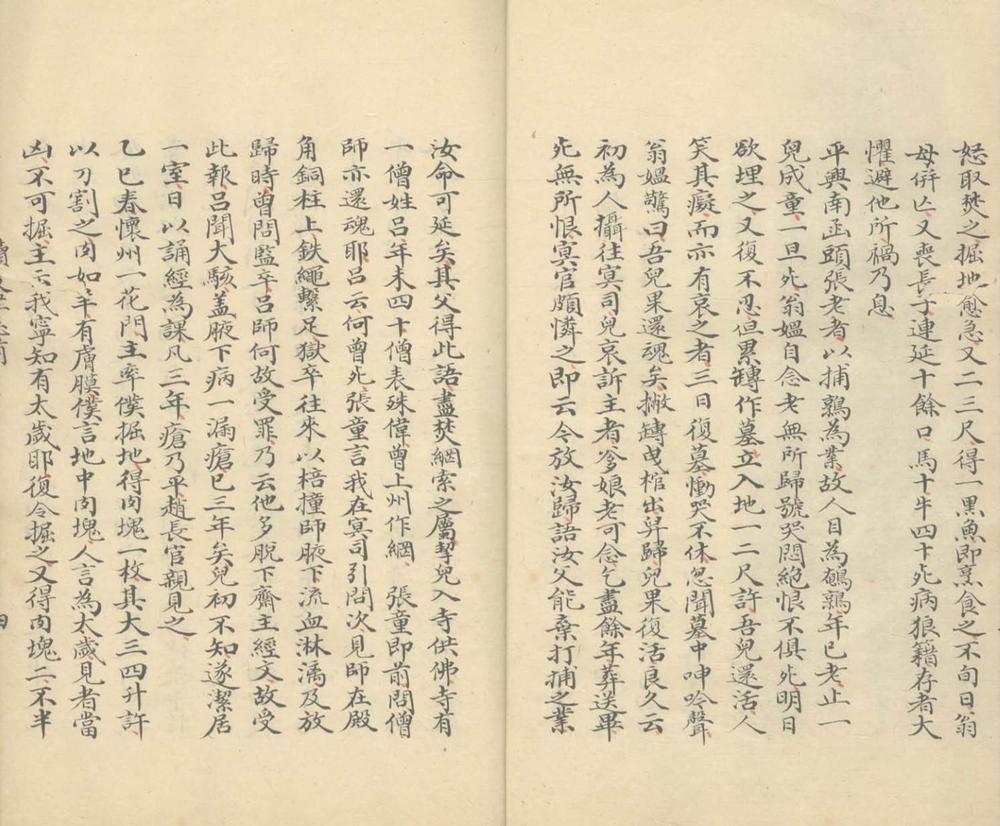 怒取焚之掘地愈急又二三尺得一黒魚即烹食之不旬日翁
母併亡又喪長子連延十餘口馬十牛四十死病狼籍存者大
懼避他所禍乃息
平輿南凾頭張老者以捕鶉為業故人目為鵪鶉年已老止一
兒成童一旦死翁媼自念老無所歸號哭悶絶恨不俱死明日
欲埋之又復不忍但累甎作墓立入地一二尺許吾兒還活人
笑其癡而亦有哀之者三日復墓慟哭不休忽聞墓中呻吟聲
翁媼驚曰吾兒果還魂矣撇甎曵棺出舁歸兒果復活良久云
初為人攝往冥司兒哀訴主者爹娘老可念乞盡餘年葬送畢
死無所恨冥官頗憐之即云令放汝歸語汝父能棄打捕之業
汝命可延矣其父得此語盡焚網索之屬挈兒入寺供佛寺有
一僧姓呂年未四十僧表殊偉曾上州作綱 張童即前問僧
師亦還魂耶呂云何曾死張童言我在冥司引問次見師在殿
角銅柱上鉄繩繫足獄卒往來以棓撞師腋下流血淋漓及放
歸時曾問監卒呂師何故受罪乃云他多脫下齋主經文故受
此報呂聞大駭盖腋下病一漏瘡已三年矣兒初不知遂潔居
一室日以誦經為課凡三年瘡乃平趙長官親見之
乙巳春懷州一花門主率僕掘地得肉塊一枚其大三四升許
以刀割之肉如羊有膚膜僕言地中肉塊人言為太歲見者當
凶不可掘主云我寧知有太歲耶復令掘之又得肉塊二不半